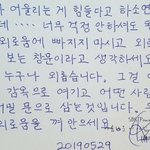 과 어울리는 게 힘들다고 하소연
데···· 너무 걱정 안하셔도
외로움에 빠지지 마시고 외로
보는 창문이라고 생각하세요
누구나 외롭습니다. 그걸
감옥으로 여기고 어떤 사람
문으로 삼는 것입니다.
외로움을 껴 안으세요.
20190529